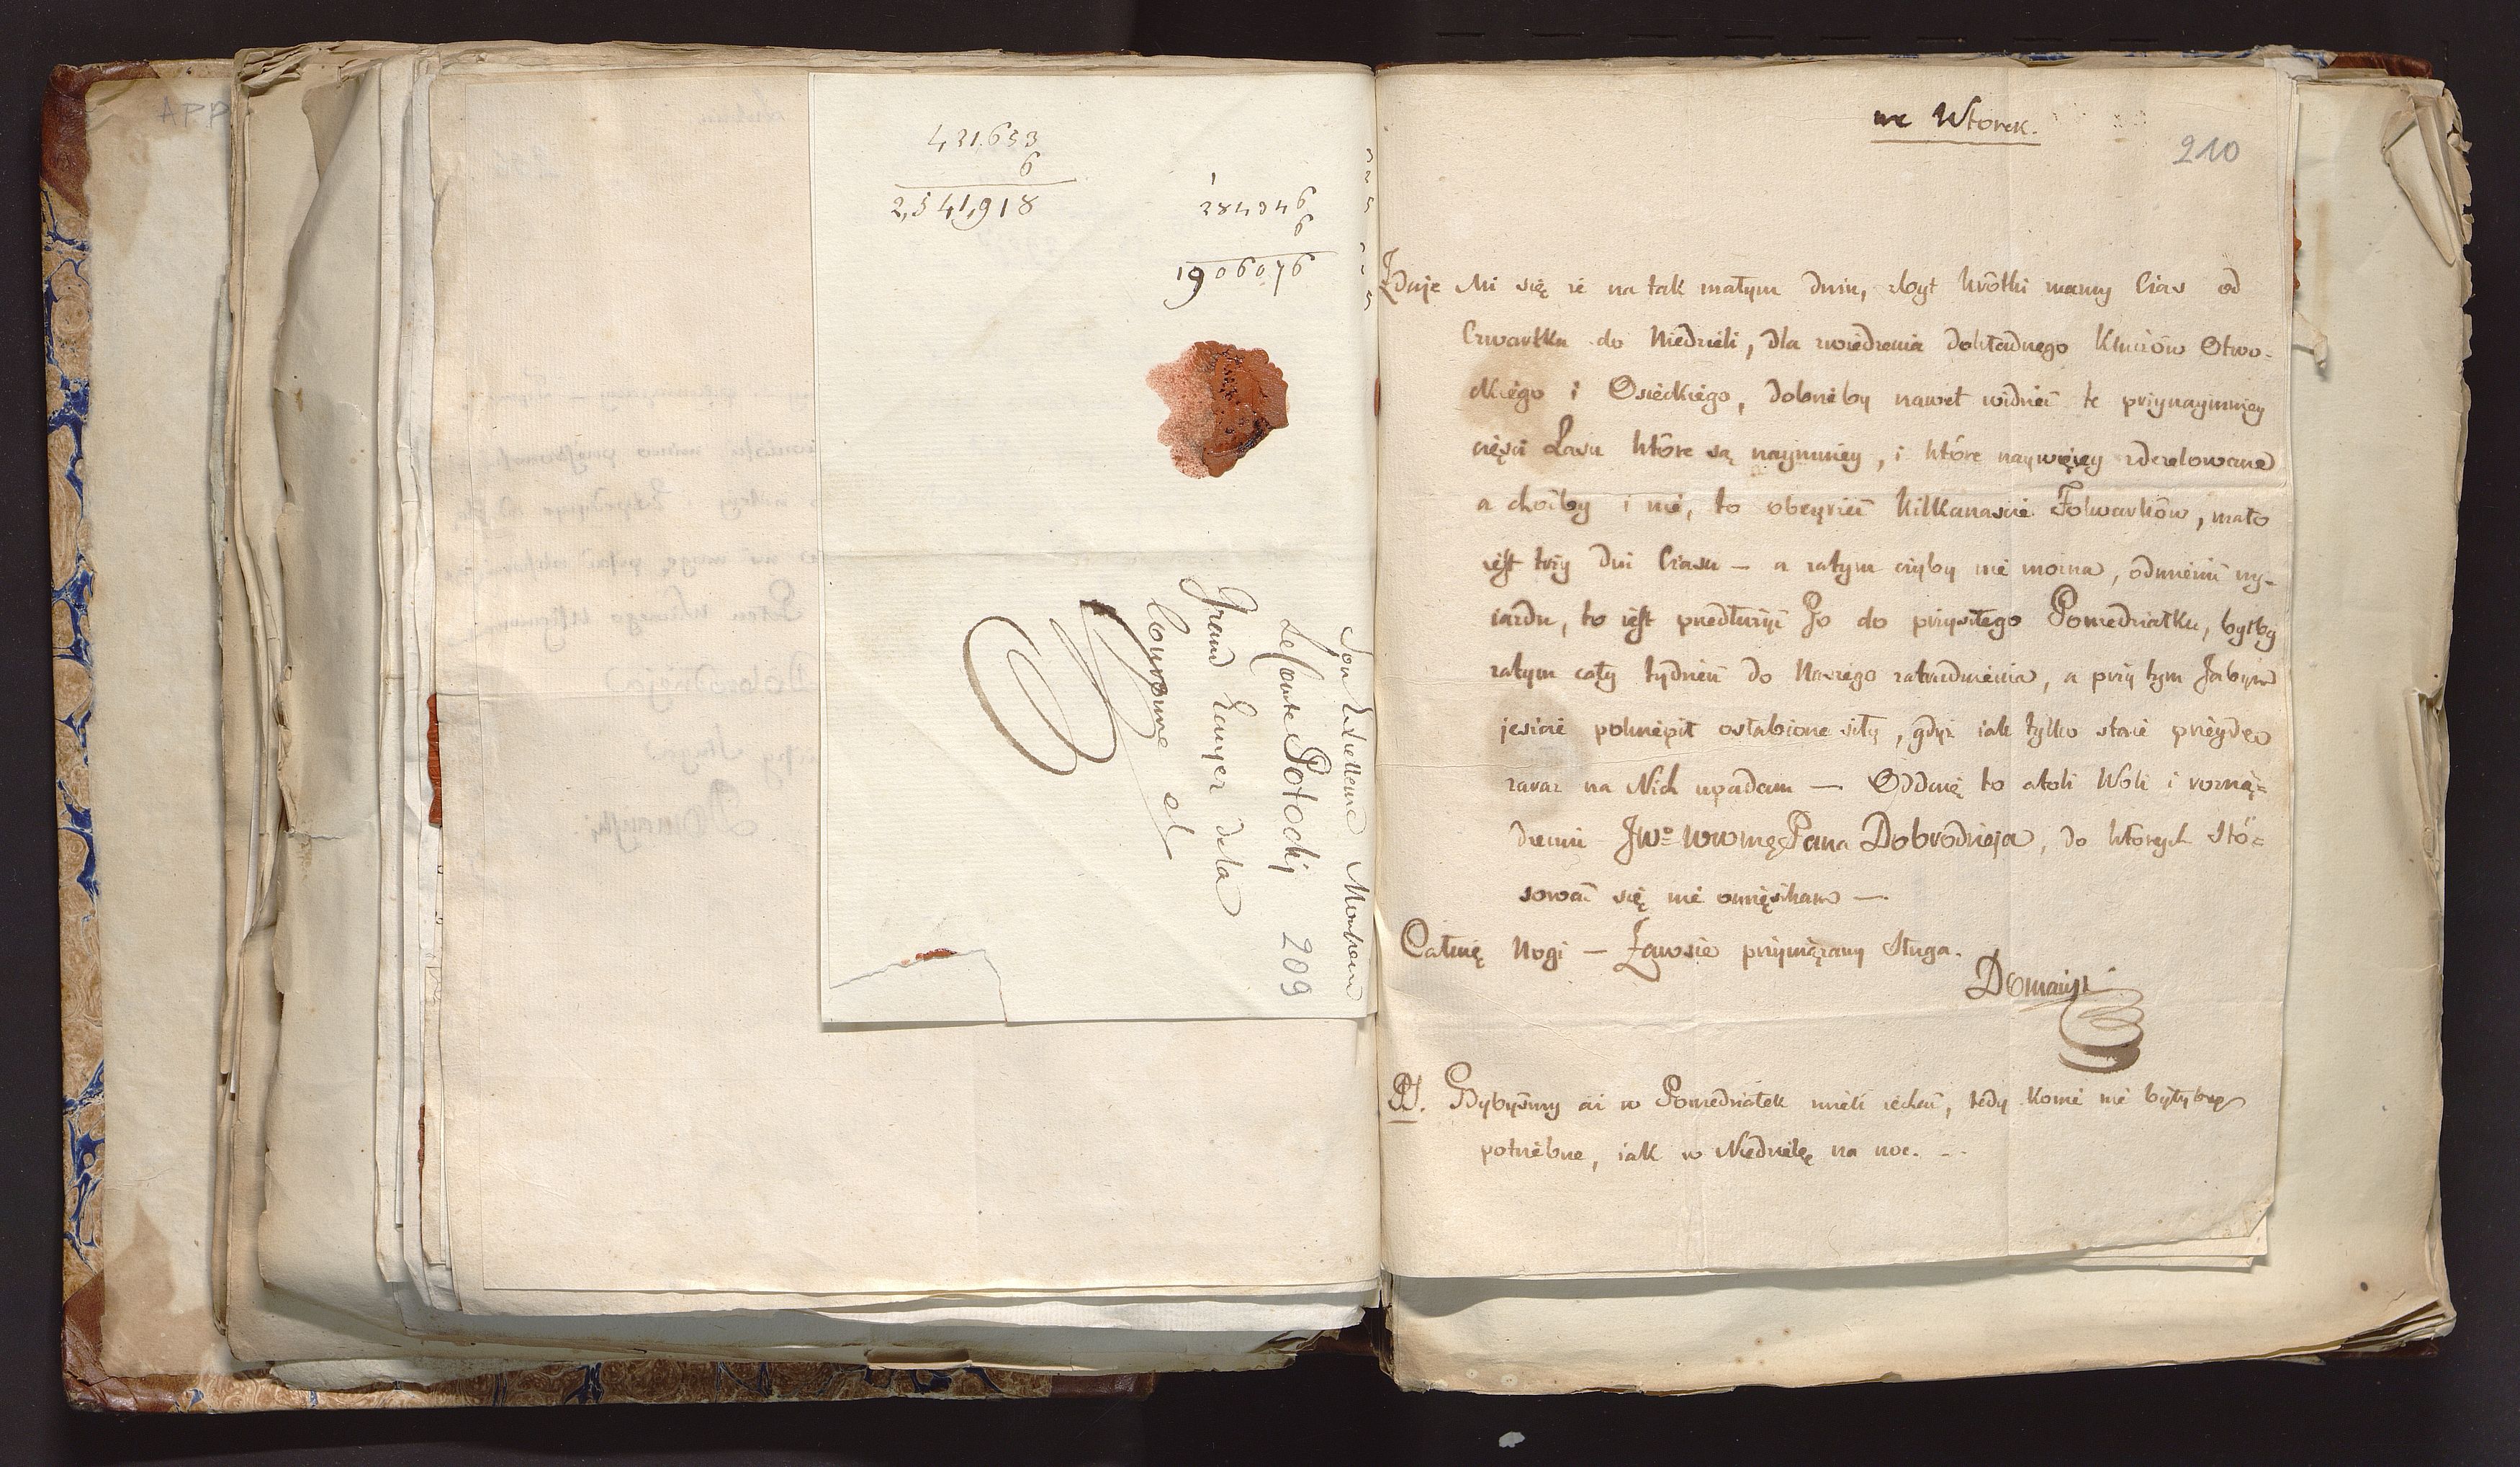 APP
421.653
6
2,541,918
1
284346
6
1906076
Son Excellence Monsieur
Le Comte Potocki
Grand Ecuyer de la
Couronne et
209
we Wtorek.
210
Zdaje Mi się że na tak małym dniu, zbyt krótki mamy Czas od
Czwartku do Niedzieli, dla zwiedzenia dokładnego Kluczów Otwo-
ckiego i Osieckiego, dobrzeby nawet widzieć te przynaymniey
części Lasu które są naymniey, i które naywięcey zdezelowane
a choćby i nie, to obeyrzeć kilkanaście Folwarków, mało
iest trzy dni Czasu — a zatym czyby nie można, odmienić wy-
iazdu, to iest przedłużyć Go do przyszłego Poniedziałku, byłby
zatym cały tydzień do Naszego zatrudnienia, a przy tym Jabym
jeszcze pokrzepił osłabione siły, gdyż iak tylko stanie przeydęo
zaraz na Nich upadam — Oddaię to atoli Woli i rozrzą-
dzeniu JWo WWMęPana Dobrodzieja, do których Stó-
sować się nie omieszkam —.
Całuię Nogi — Zawsze przywiązany Sługa.
Domański
PS. Gdybyśmy aż w Poniedziałek mieli iechać, tedy konie nie byłyby
potrzebne, iak w Niedzielę na noc. --